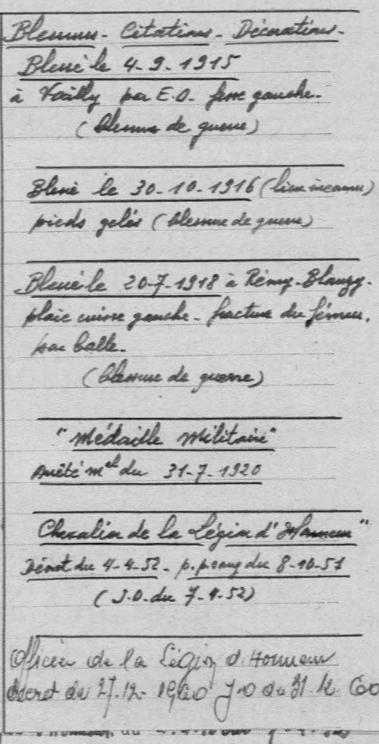 Blessures - Citations - Décorations -
Blessé le 4-9-1915
à Vailly par E.O. fesse gauche.
(blessure de guerre)
Blessé le 30-10-1916 (lieu inconnu)
pieds gelés (blessure de guerre)
Blessé le 20-7-1918 à Rémy-Blanzy.
plaie cuisse gauche - fracture du fémur.
par balle.
(blessure de guerre)
"Médaille Militaire"
Arrêté mel du 31-7-1920
Chevalier de la Légion d'Honneur"
Décret du 4-4-52 - p.prang du 8-10-51
(J.O. du 7-4-52)
Officier de la Légion d'Honneur
décret du 27.12.1960 J.O du 31.12.60